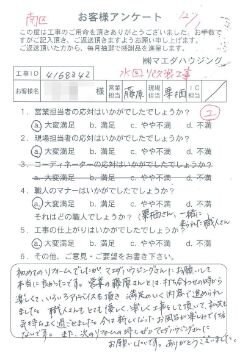 南区
お客様アンケート
この度は工事のご依頼ありがとうございました。お手数で
すがご記入頂き、ご返送頂きますようお願い申し上げます。
ご返送頂いた方から、毎月抽選で感謝品を進呈します。
㈱マエダハウジング
工事ID 4168342 水回りリフォーム工事
様 営業担当 藤原 現場担当 栗栖 IC担当
1. 営業担当者の応対はいかがでしたでしょうか?
a.大変満足 b.満足 c.やや不満 d.不満
2. 現場担当者の応対はいかがでしたでしょうか?
a.大変満足 b.満足 c.やや不満 d.不満
3. コーディネーターの応対はいかがでしたでしょうか?
a.大変満足 b.満足 c.やや不満 d.不満
4. 職人のマナーはいかがでしたでしょうか?
a.大変満足 b.満足 c.やや不満 d.不満
それはどの職人でしょうか(栗栖さん、一緒に
来られた職人さん)
5. 工事の仕上がりはいかがでしたでしょうか?
a.大変満足 b.満足 c.やや不満 d.不満
6. その他、ご意見・ご要望をお書き下さい。
初めてのリフォームでしたが マエダハウジングさんにお願いして
本当に良かったです。営業の藤原さんとは打ち合わせの時から
楽しくて、いろいろアドバイスも頂き 満足のいく内容で進められ
ました。職人さんもとても優しく、楽しく工事をして頂いて、私たちも
気持ちよく過ごせました。今は新しくなったお風呂が楽しみで
ないです。また、次のリフォームの時もぜひマエダハウジングに
お願いしたいです。ありがとうございました。